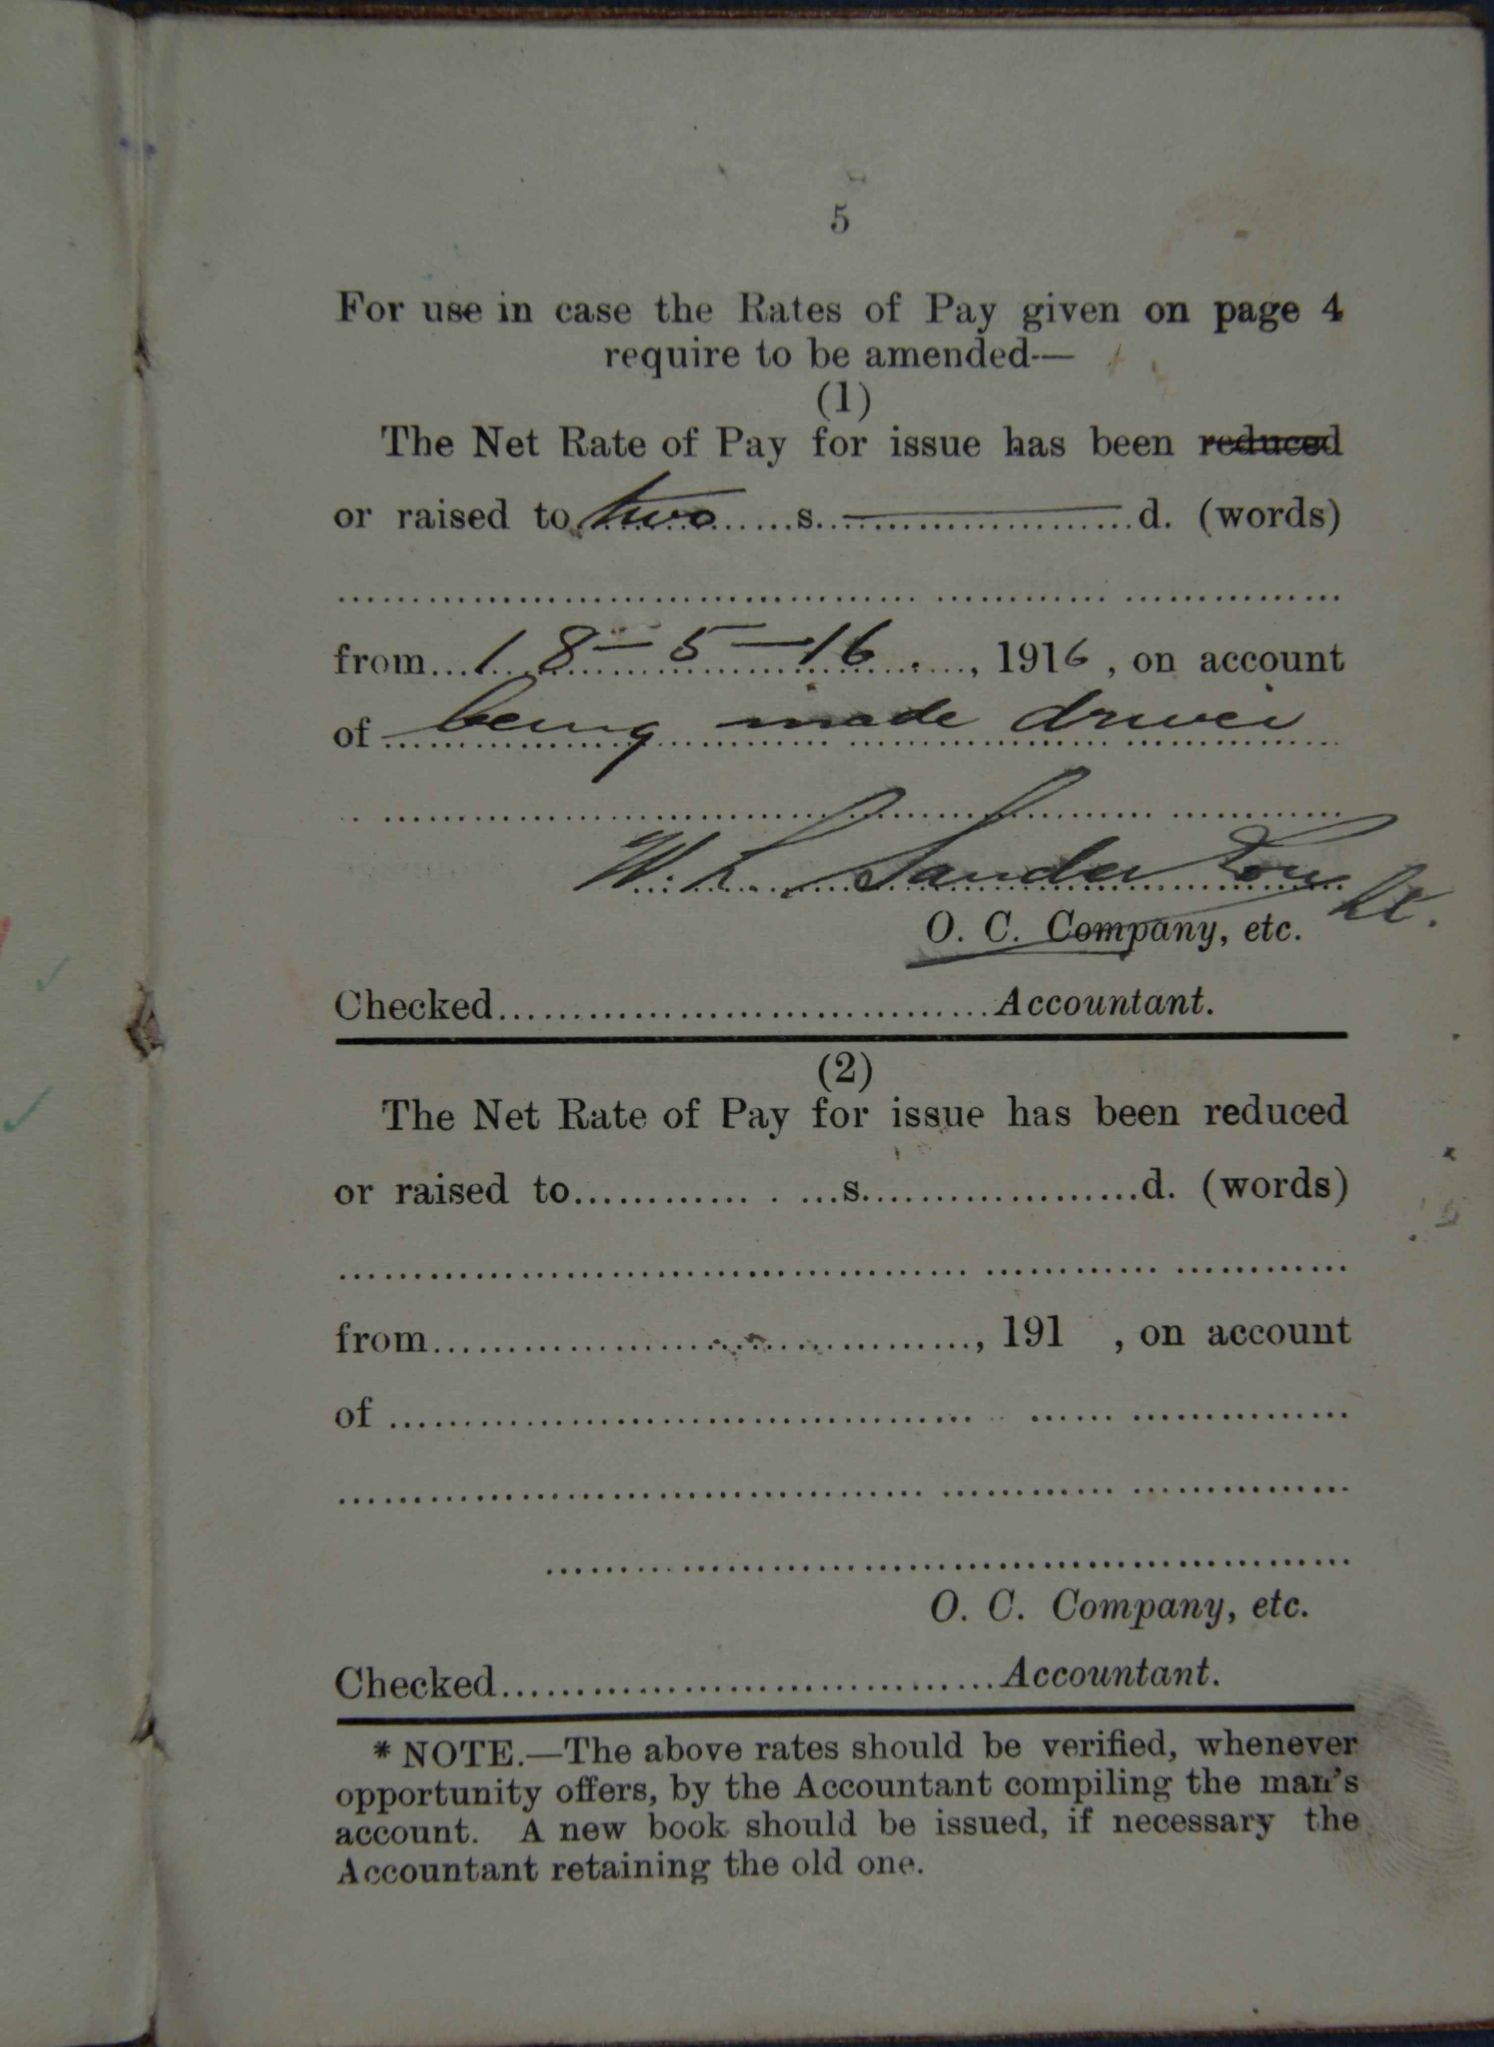 5
For use in case the Rates of Pay given on page 4
require to be amended—
(1)
The Net Rate of Pay for issue has been reduced
or raised to two s. — d. (words)
from 18-5-16, 1916, on account
of being made driver
W. L. Sanderson Lt.
O. C. Company, etc.
Checked Accountant.
(2)
The Net Rate of Pay for issue has been reduced
or raised to s. d. (words)
from , 191 , on account
of
O. C. Company, etc.
Checked Accountant.
* NOTE.—The above rates should be verified, whenever
opportunity offers, by the Accountant compiling the man's
account. A new book should be issued, if necessary the
Accountant retaining the old one.